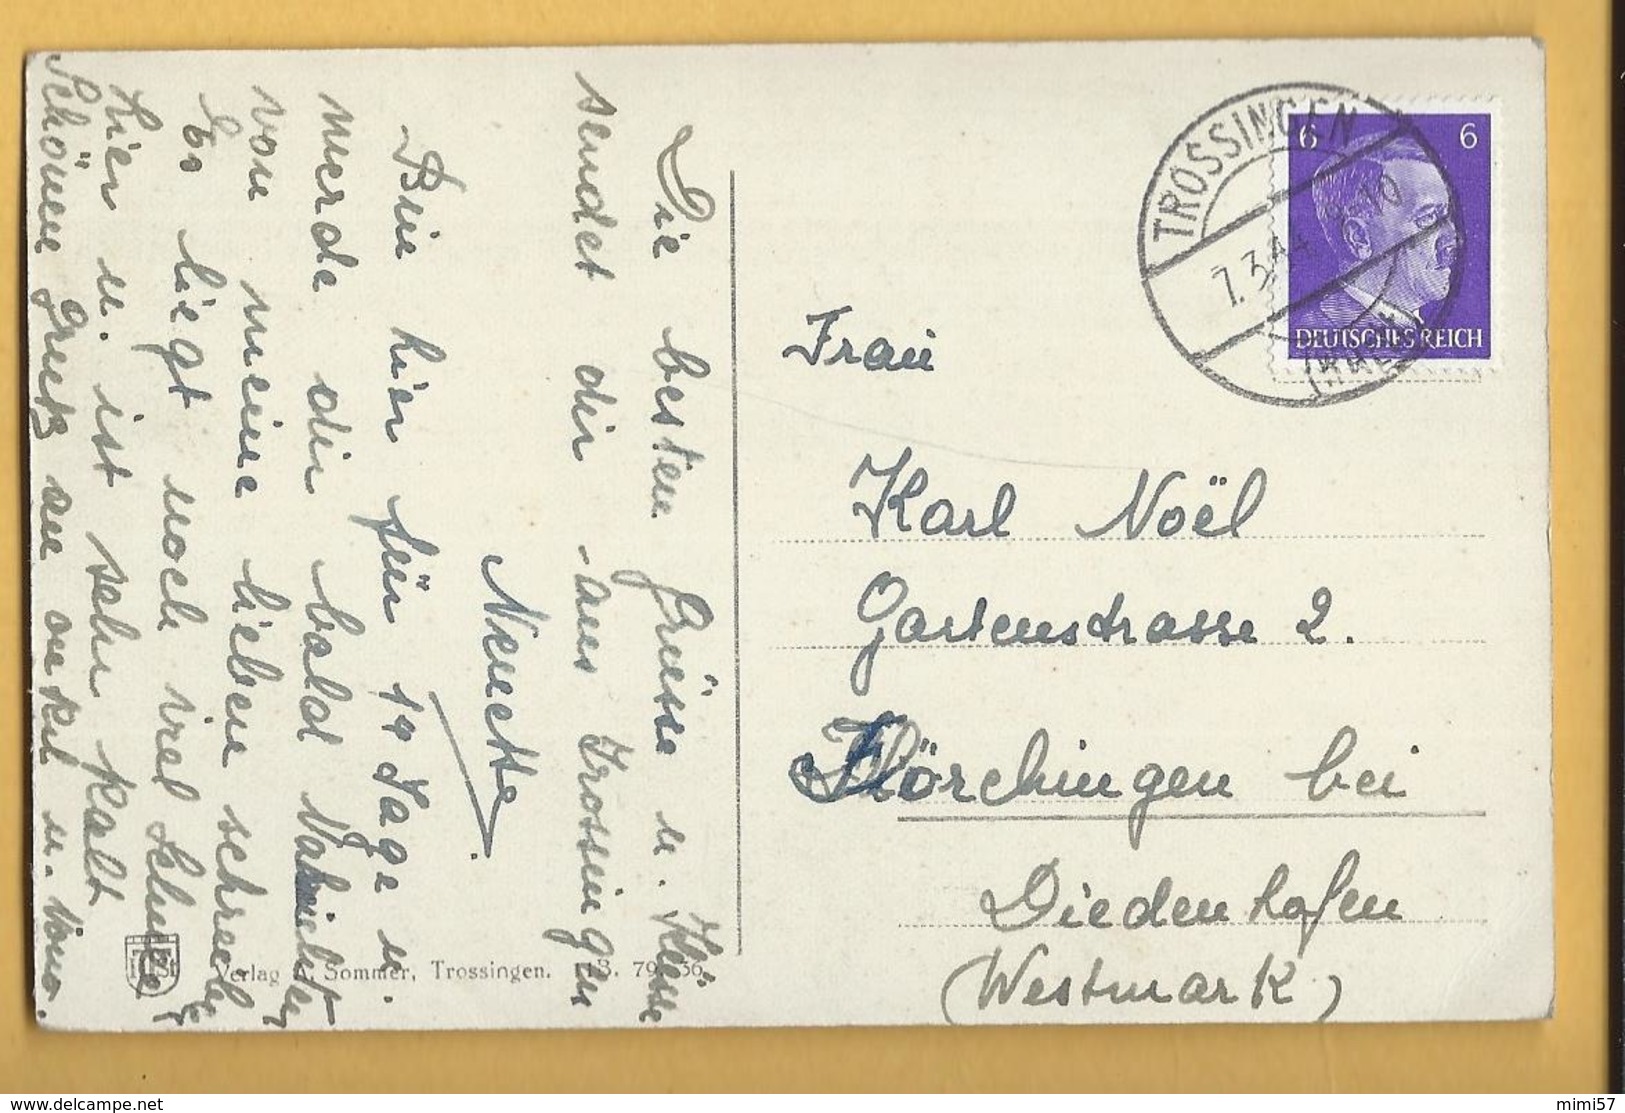 Die besten Grüsse u. Küsse
sendet dir aus Trossingen
Nenette
Bin hier für 14 Tage u.
werde dir bald
von meine lieben schreiben
Es liegt noch viel Schnee
hier u. ist sehr kalt
Schönen Grutz an onkel u.
TROSSINGEN
7.3.44
6
6
DEUTSCHES REICH
Frau
Karl Noël
Gartenstrasse 2.
Flörchingen bei
Diedenhofen
(Westmark)
Verlag A. Sommer, Trossingen.
mimi57